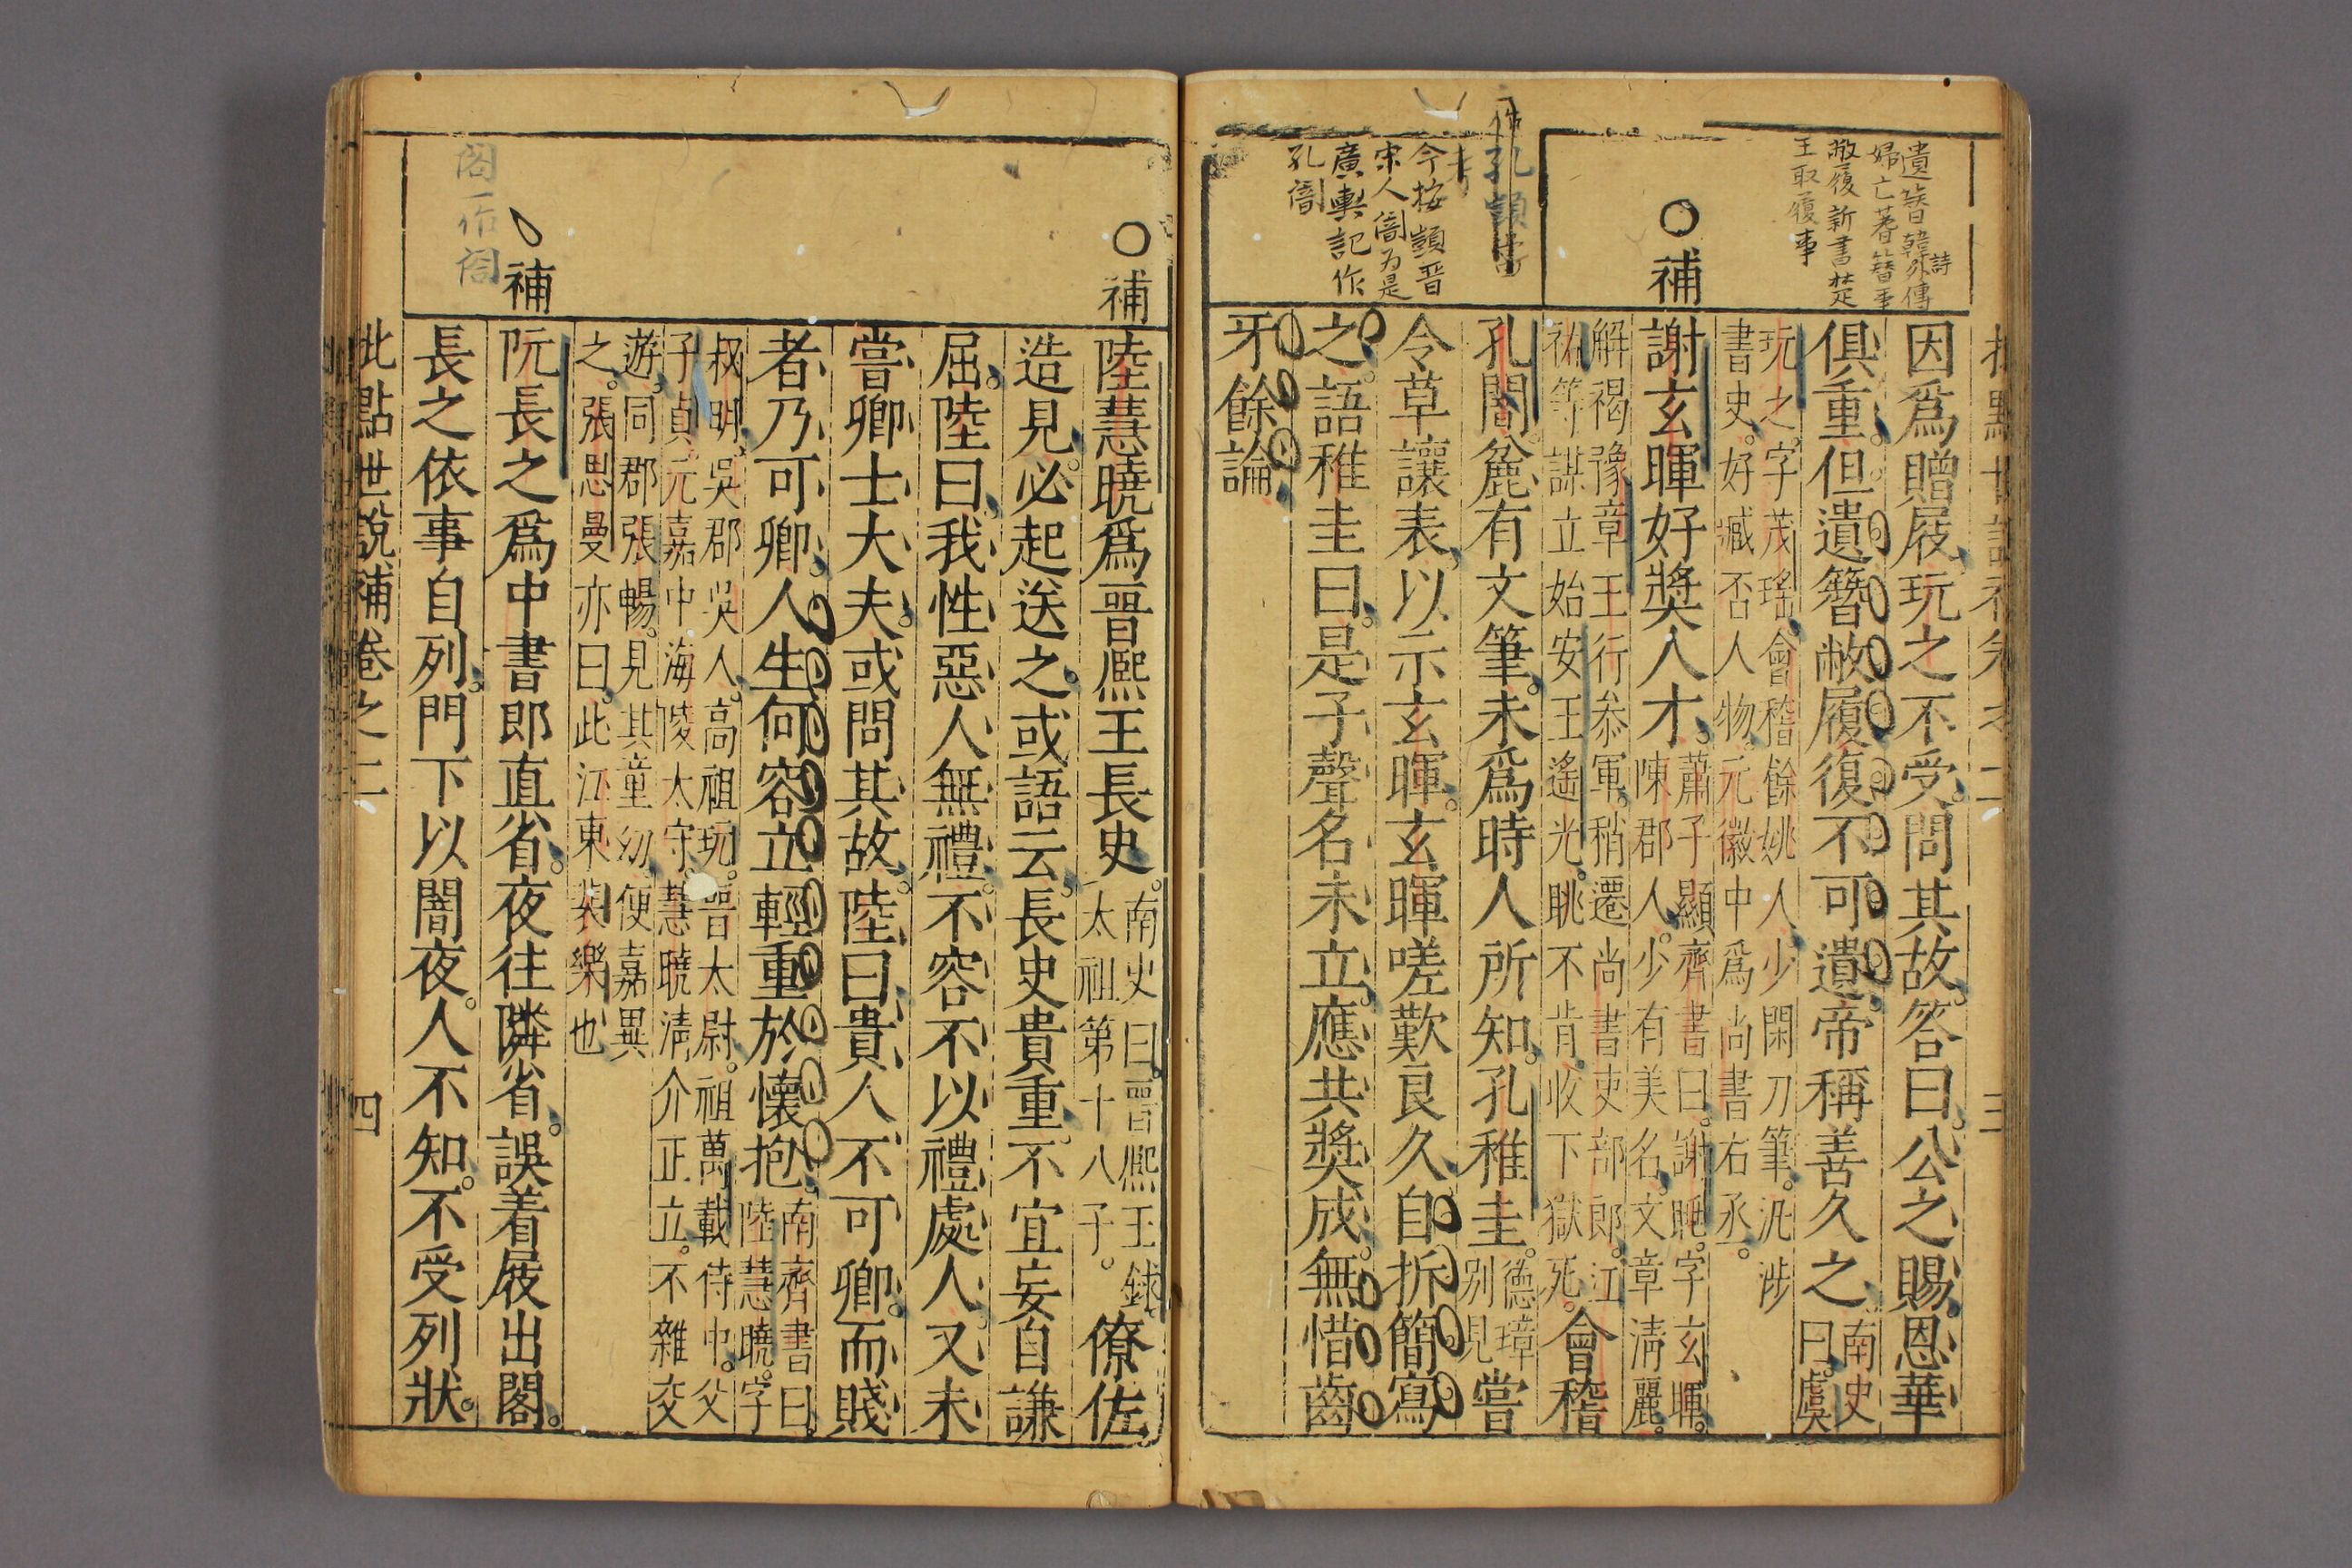 遺簪韓詩外傳
婦亡蓍簪事
敝履新書楚
王取履事
補
今按顗晋
宋人闇為是
廣輿記作
孔闇
因爲贈屐玩之不受問其故答曰公之賜恩華
俱重但遺簪敝履復不可遺帝稱善久之南史曰虞
玩之字茂瑤會稽餘姚人少閑刀筆汎涉
書史好臧否人物元徽中爲尚書右丞
謝玄暉好奬人才蕭子顯齊書曰謝朓字玄暉
陳郡人少有美名文章淸麗
解褐豫章王行叅軍稍遷尚書吏部郎江
祏等謀立始安王遙光朓不肯收下獄死會稽
孔闇麄有文筆未爲時人所知孔稚圭德璋别見嘗
令草讓表以示玄暉玄暉嗟歎良久自折簡寫
之語稚圭曰是子聲名未立應共奬成無惜齒
牙餘論
補
補
閣一作閤
陸慧曉爲晋熈王長史南史曰晋熈王銶
太祖第十八子僚佐
造見必起送之或語云長史貴重不宜妄自謙
屈陸曰我性惡人無禮不容不以禮處人又未
嘗卿士大夫或問其故陸曰貴人不可卿而賤
者乃可卿人生何容立輕重於懷抱南齊書曰
陸慧曉字
叔明吳郡吳人高祖玩晋太尉祖萬載侍中父
子貞元嘉中海陵太守慧曉淸介正立不雜交
遊同郡張暢見其童幼便嘉異
之張思曼亦曰此江東裴樂也
阮長之爲中書郎直省夜往隣省誤着屐出閣
長之依事自列門下以闇夜人不知不受列狀
批點世說補卷之二
四